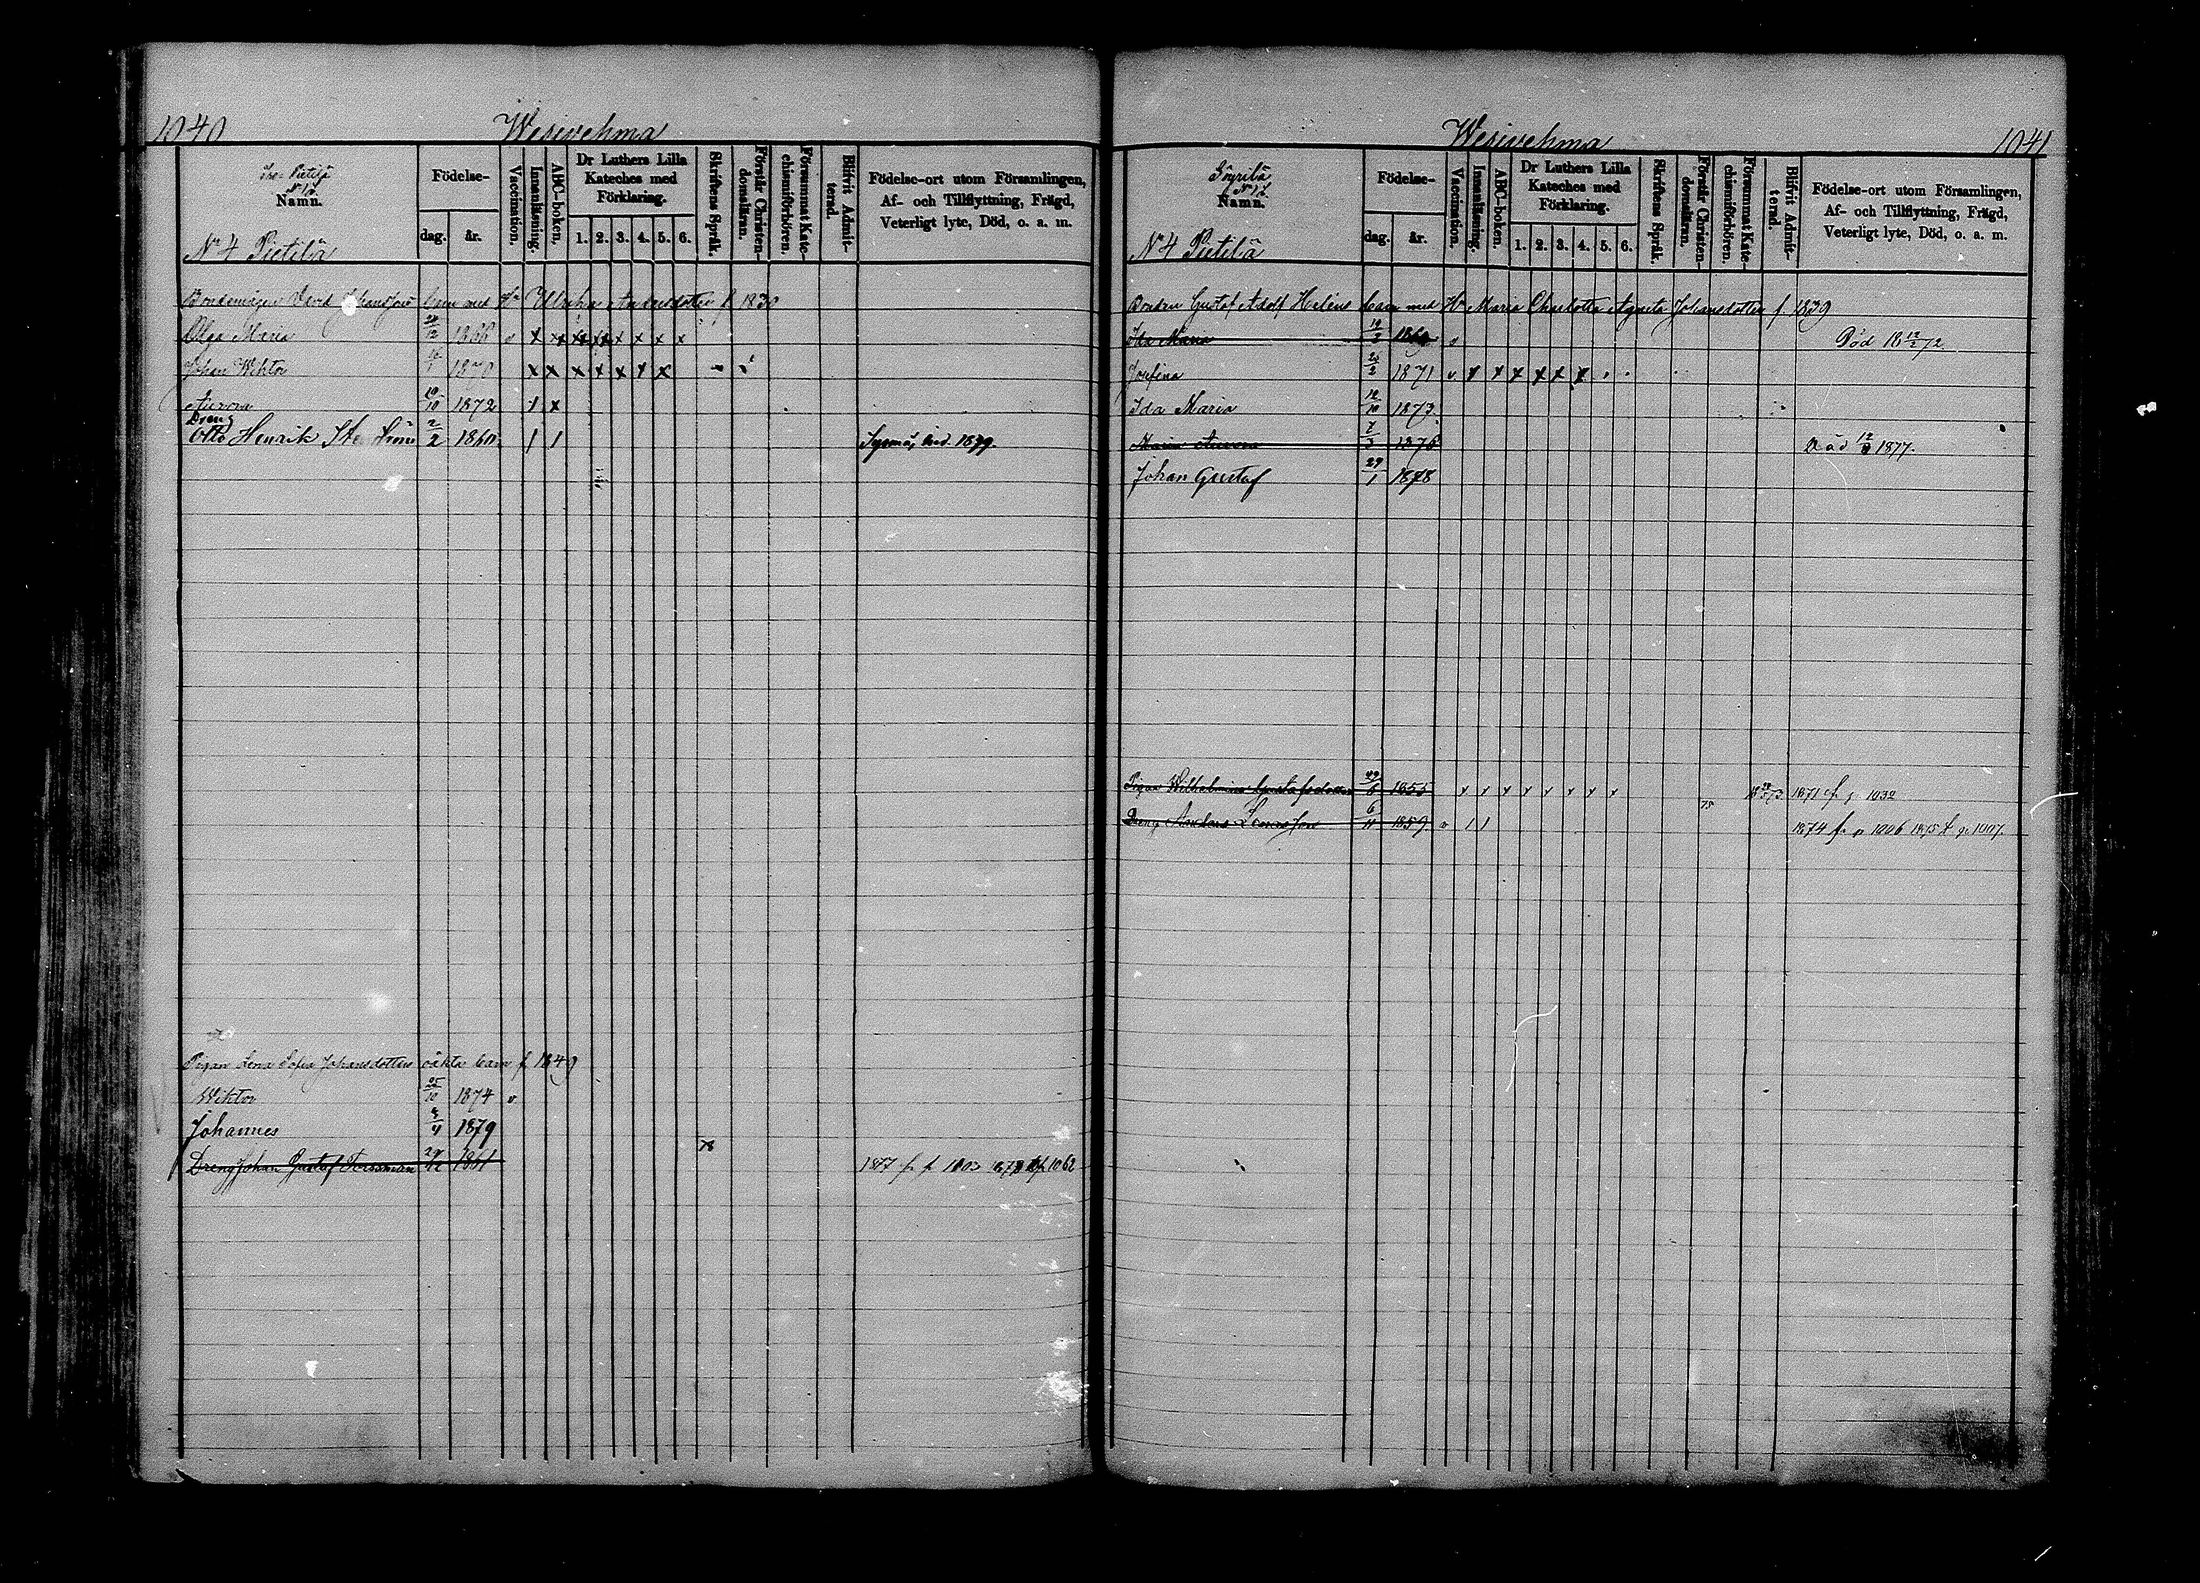 1040 Wesivehma
Pietilä
Namn.
Födelse-
dag. år.
Vaccination.
Innanläsning.
ABC-boken.
Dr Luthers Lilla
Kateches med
Förklaring.
1. 2. 3. 4. 5. 6.
Skriftens Språk.
Förstår Christen-
domsläran.
Försummat Kate-
chismiförhören.
Blifvit Admit-
terad.
Födelse-ort utom Församlingen,
Af- och Tillflyttning, Frägd,
Veterligt lyte, Död, o. a. m.
No 4 Pietilä
Bondemågen David Johansson barn med Hu Ulrika Andersdotter f 1830
Olga Maria 12 1866 v x xx xx xx x x x x
Johan Wiktor 1870 x x x x x x x
Aurora 10 1872 1 x
Dreng
Otto Henrik 2/2 1860 1 1 Sysmä, 1879.
Pigan Lena Sofia Johansdotters oäkta barn f 1849
Wiktor 25/10 1874 v
Johannes 1879
78
Dreng Johan Gustaf Forssman 29/12 1861 1877 fr p 1003 1878 t p 1062
Wesivehma 1041
Pyrilä
Namn.
Födelse-
dag. år.
Vaccination.
Innanläsning.
ABC-boken.
Dr Luthers Lilla
Kateches med
Förklaring.
1. 2. 3. 4. 5. 6.
Skriftens Språk.
Förstår Christen-
domsläran.
Försummat Kate-
chismiförhören.
Blifvit Admit-
terad.
Födelse-ort utom Församlingen,
Af- och Tillflyttning, Frägd,
Veterligt lyte, Död, o. a. m.
No 4 Pietilä
Bonden Gustaf Adolf Helenius barn med Hu Maria Charlotta Agneta Johansdotter f 1839
Ida Maria 19/3 1869 v Död 18 12/2 72
Josefina 24/2 1871 v x x x x x x
Ida Maria 12/10 1873
Maria Aurora 7/3 1876 Död 12/3 1877.
Johan Gustaf 29/1 1878
Pigan Wilhelmina Gustafsdotter 29/6 1855 x x x x x x x x 75 1873 1871 fr p 1032
Dreng Anders 6/11 1859 v 1 1 1874 fr p 1006 1875 t p 1007